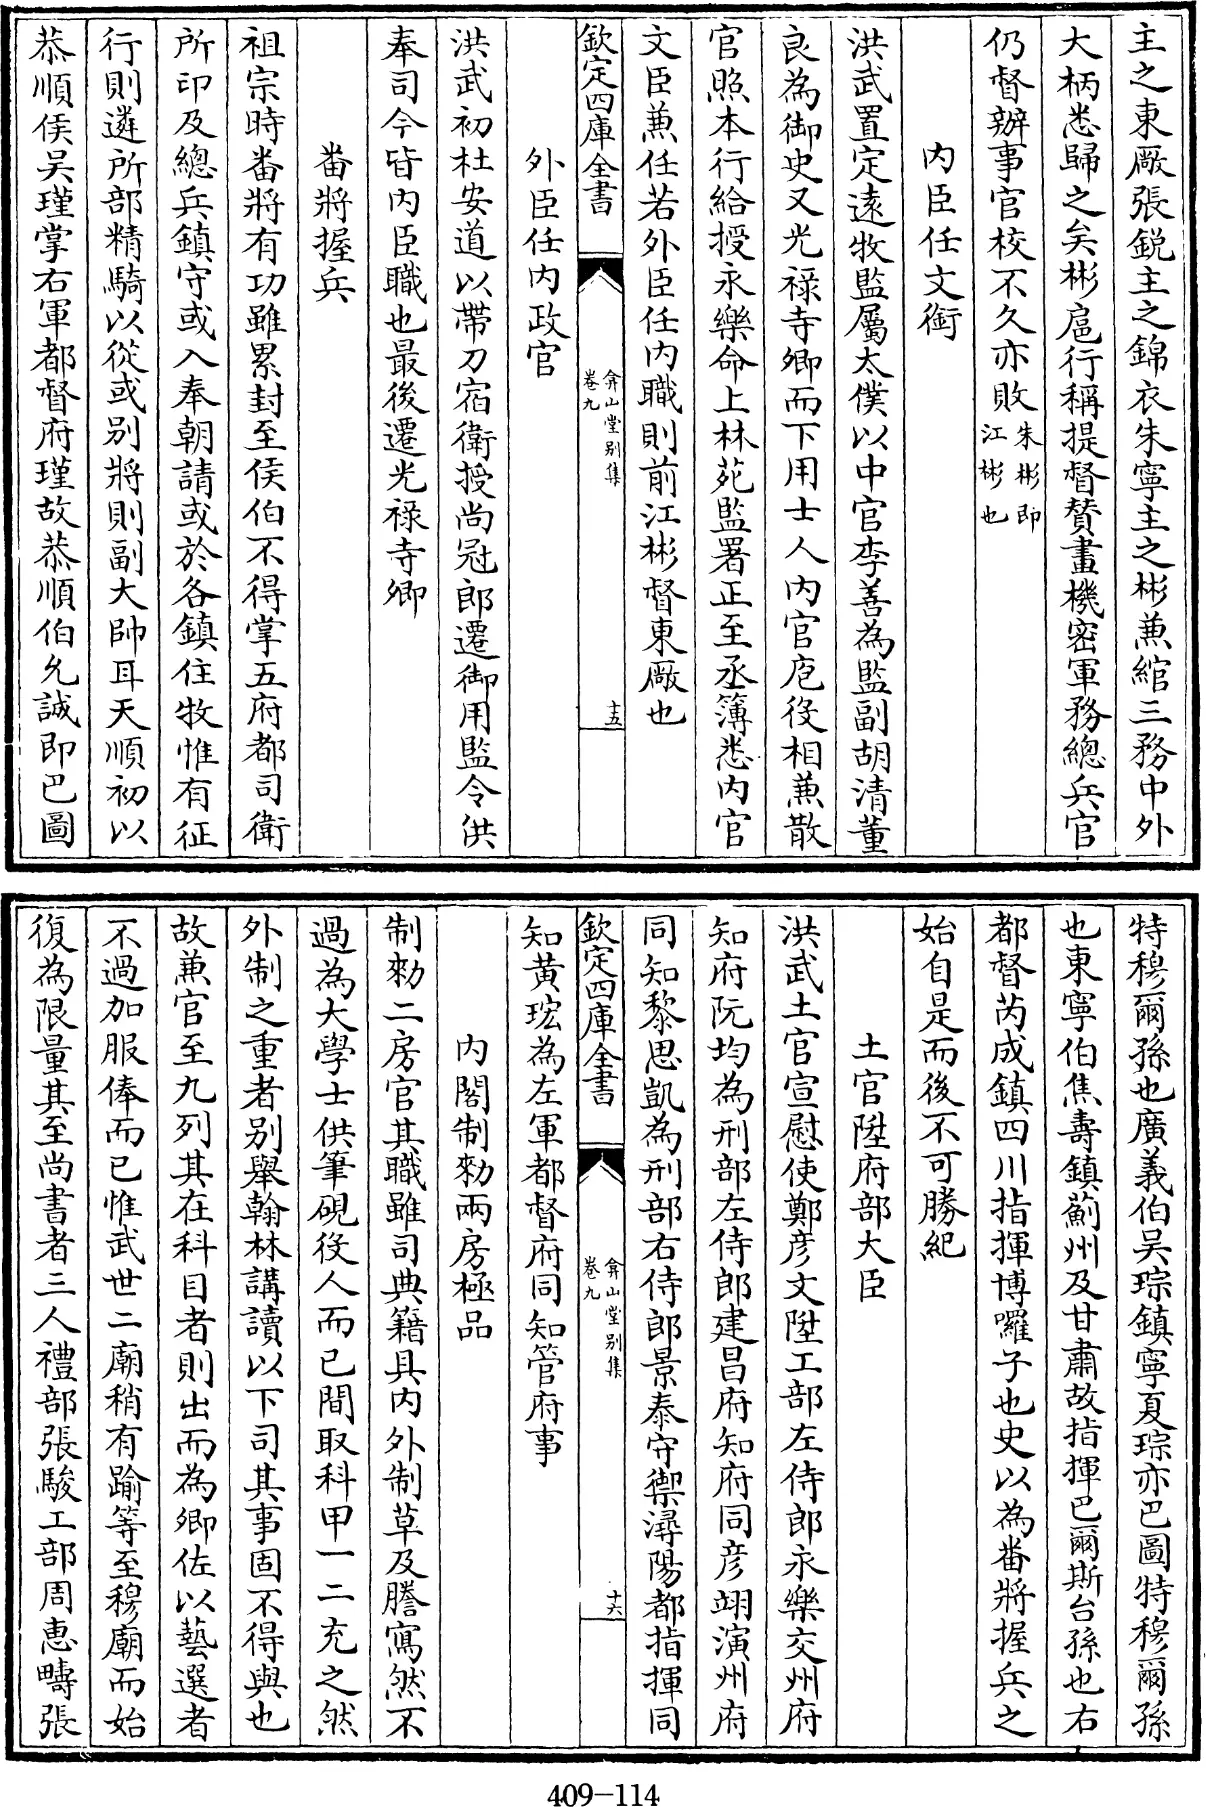 主之東厰張鋭主之錦衣朱寧主之彬兼綰三務中外
大柄悉歸之矣彬扈行稱提督賛畫機密軍務總兵官
仍督辦事官校不久亦敗朱彬即江彬也
内臣任文銜
洪武置定逺牧監屬太僕以中官李善為監副胡清董
良為御史又光禄寺卿而下用士人内官庖役相兼散
官照本行給授永樂命上林苑監署正至丞簿悉内官
文臣兼任若外臣任内職則前江彬督東厰也
欽定四庫全書
弇山堂别集
卷九
十五
外臣任内政官
洪武初杜安道以帶刀宿衛授尚冠郎遷御用監令洪
奉司今皆内臣職也最後遷光禄寺卿
畨將握兵
祖宗時畨將有功雖累封至侯伯不得掌五府都司衛
所印及總兵鎮守或入奉朝請或於各鎮住牧惟有征
行則遴所部精騎以從或别將則副大帥耳天順初以
恭順侯吴瑾掌右軍都督府瑾故恭順伯允誠即巴圖
特穆爾孫也廣義伯吴琮鎮寧夏琮亦巴圖特穆爾孫
也東寧伯焦壽鎮薊州及甘肅故指揮巴爾斯台孫也右
都督芮成鎮四川指揮博囉子也史以為畨將握兵之
始自是而後不可勝紀
土官陞府部大臣
洪武土官宣慰使鄭彦文陞工部左侍郎永樂交州府
知府阮均為刑部左侍郎建昌府知府同彦翊演州府
同知黎思凱為刑部右侍郎景泰守禦潯陽都指揮同
欽定四庫全書
弇山堂别集
卷九
十六
知黄玹為左軍都督府同知管府事
内閣制勅兩房極品
制勅二房官其職雖司典籍具内外制草及謄寫然不
過為大學士供筆硯役人而已間取科甲一二充之然
外制之重者别舉翰林講讀以下司其事固不得與也
故兼官至九列其在科目者則出而為卿佐以藝選者
不過加服俸而已惟武世二廟稍有踰等至穆廟而始
復為限量其至尚書者三人禮部張駿工部周惠疇張
409-114